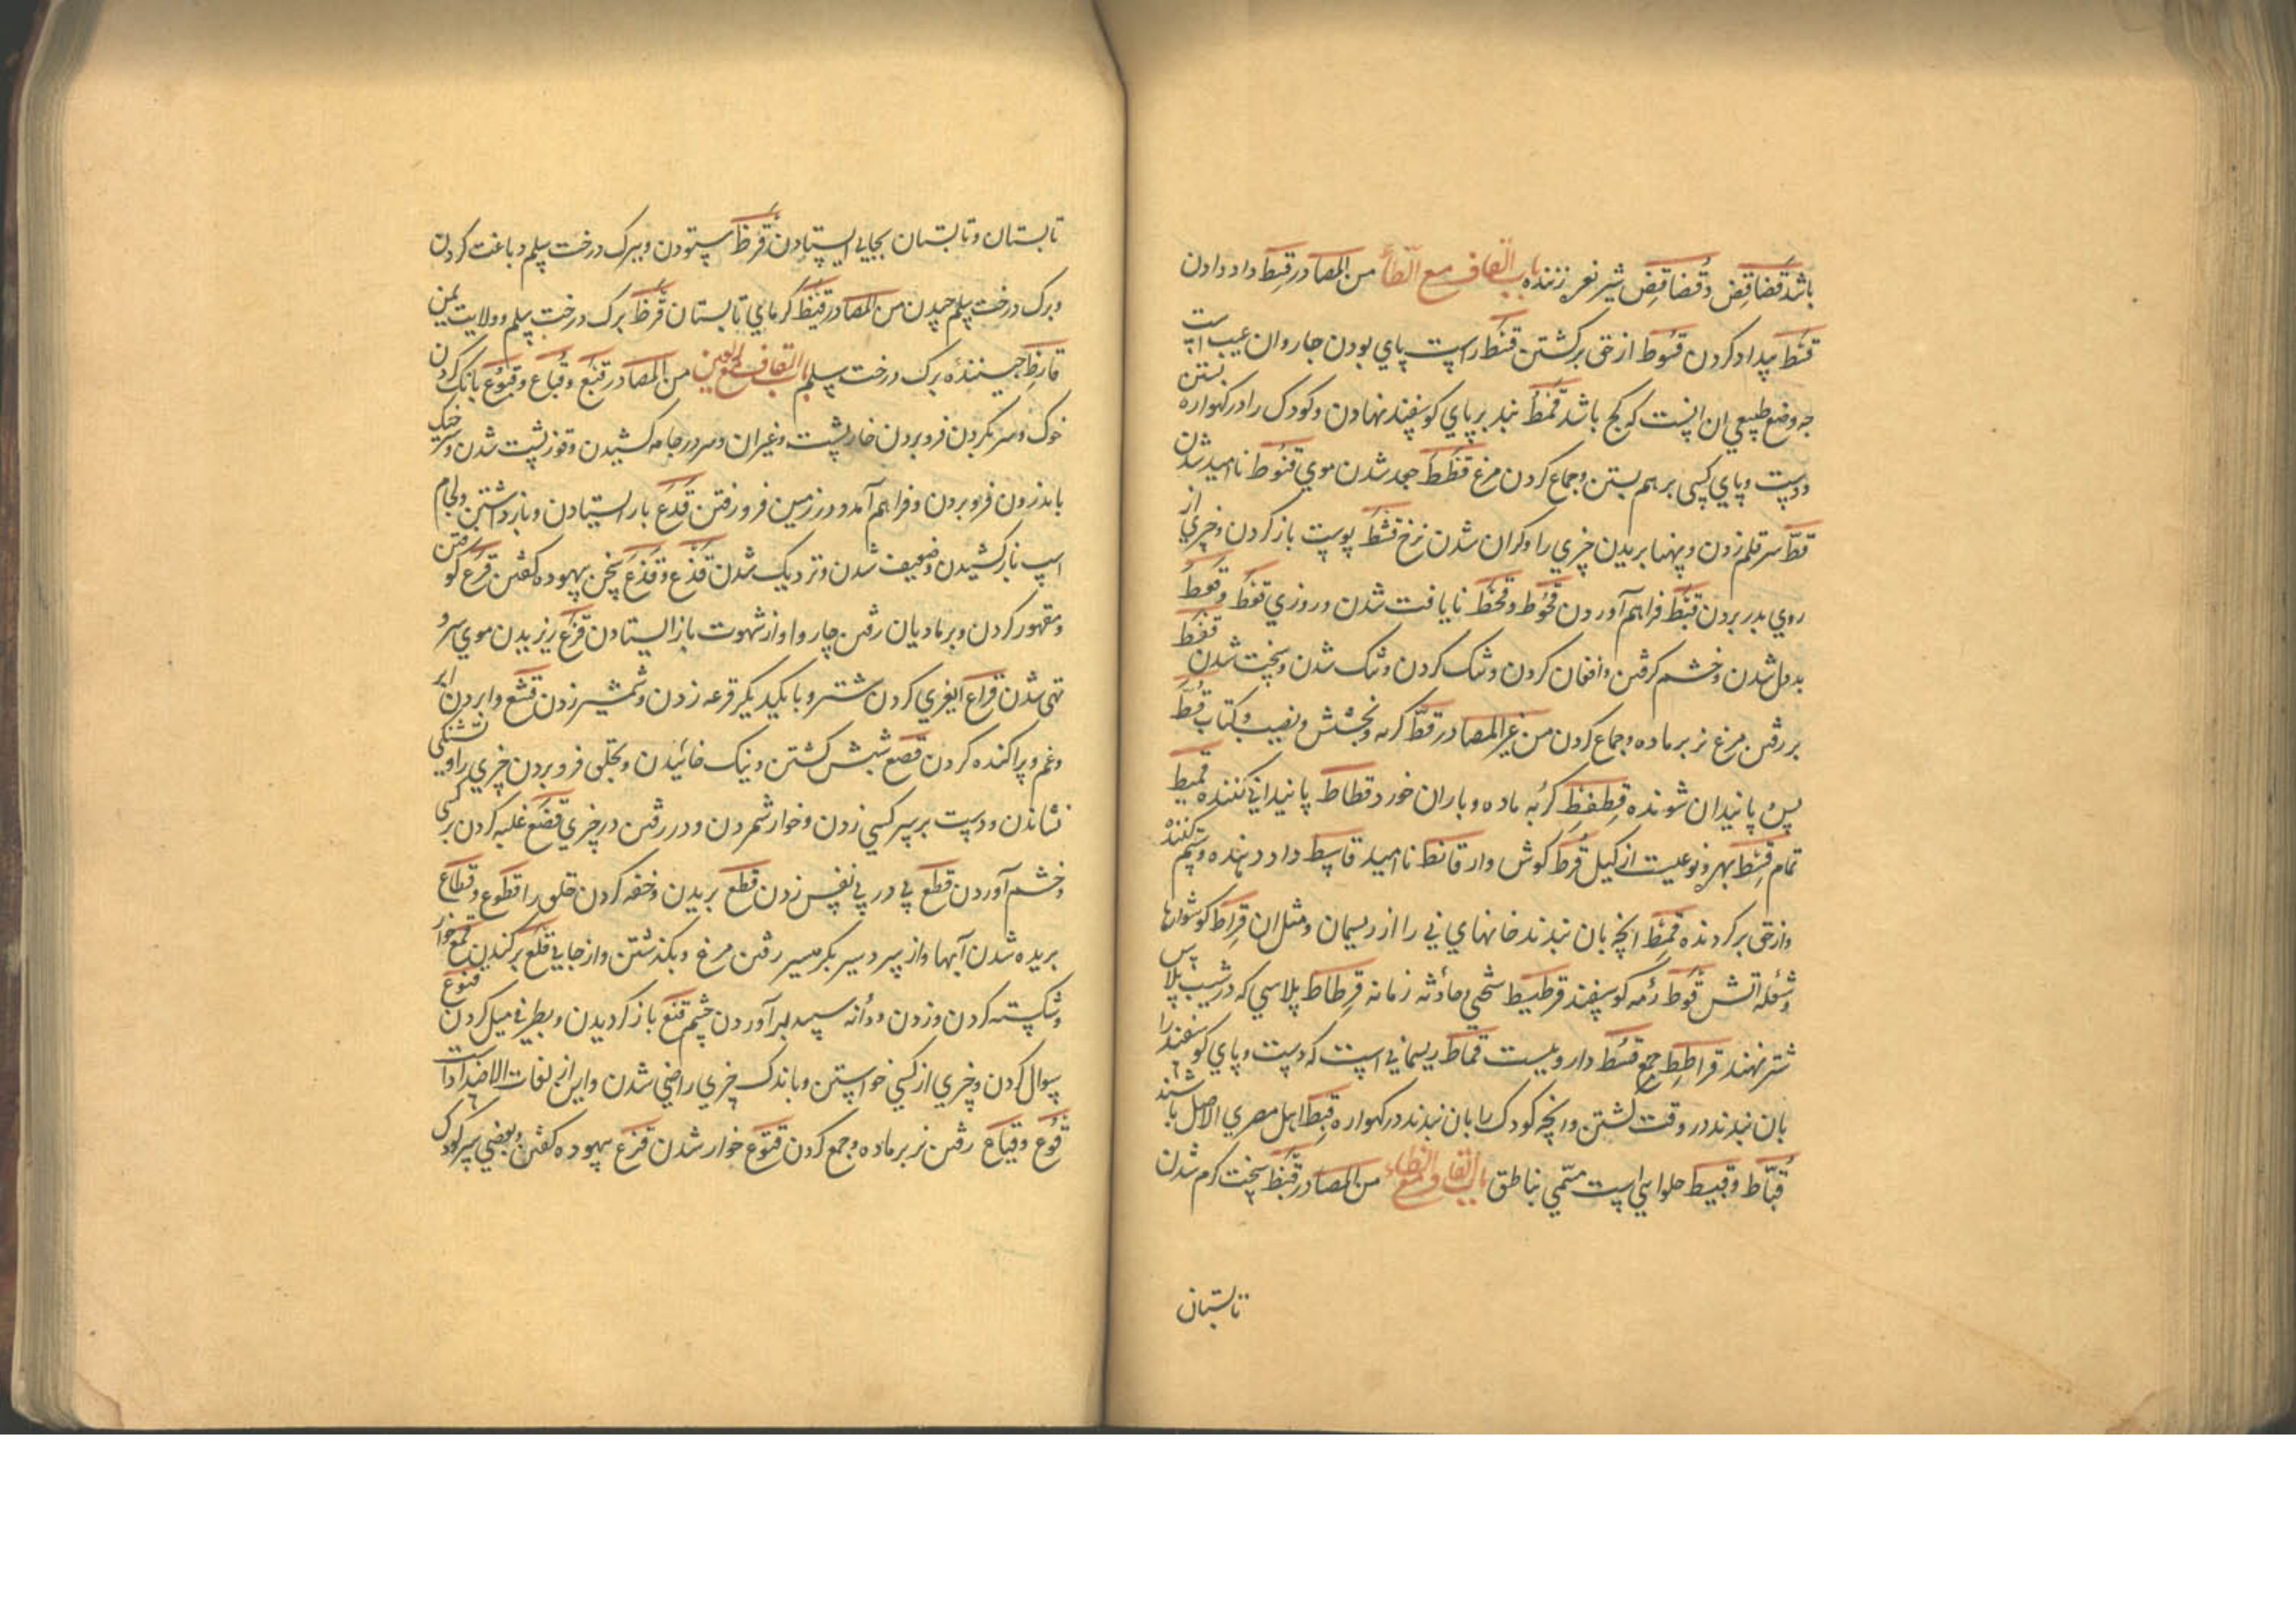 باشد قضاقض و قضاقض شیر نعره زننده باب القاف مع الطاء من المصادر قسط داد دادن
قسط بیداد کردن قسوط از حق برگشتن قسط راست پای بودن چاروا و ان عیب است
چه وضع طبیعی ان انست که کج باشد قمط بند بر پای کوسفند نهادن و کودک را در کهواره بستن
و دست و پای کسی بر هم بستن و جماع کردن مرغ قطط جعد شدن موی قنوط نا امید شدن
قط سر قلم زدن و پهنا بریدن چیزی را و کران شدن نرخ قشط پوست باز کردن و چیزی از
روی بدر بردن قبط فراهم آوردن قحوط و قحط نایافت شدن و روزی قعط و قعط
بددل شدن و خشم کرفتن و افغان کردن و تنک کردن و تنک شدن و سخت شدن قفط
بر رفتن مرغ نر بر ماده و جماع کردن من غیر المصادر قط کربه و بخشش و نصیب و کتاب قط
پس و پانیدان شونده کربه ماده و باران خورد قطاط پانیدانی کننده قمیط
تمام قسط بهره و نوعیست از کیل قرط کوش وار قانط نا امید قاسط داد دهنده و ستم کننده
و از حق بر کردنده قمط انچه بان بندند خانهای نی را از ریسمان و مثل ان قراط کوشوارها
و شعله آتش قوط رمه کوسفند قرطیط سختی و حادثه زمانه قرطاط پلاسی که در شیب پلاس
شتر نهند قراطط جمع قسط دارویست قماط ریسمانی است که دست و پای کوسفند را
بان بندند در وقت کشتن و انچه کودک را بان بندند در کهواره قبط اهل مصری الاصل باشند
قباط و قبیط حلوایی است مسمی بناطق باب القاف مع الظاء من المصادر قیظ سخت کرم شدن
تابستان
تابستان و تابستان بجایی ایستادن قرظ ستودن و ببرک درخت سلم دباغت کردن
و برک درخت سلم چیدن من المصادر قیظ کرمای تابستان قرظ برک درخت سلم و ولایت یمن
قارظ چیننده برک درخت سلم باب القاف مع العین من المصادر قبع و قباع و قبوع بانک کردن
خوک و سر بکردن فرو بردن خارپشت و غیر ان و سر در جامه کشیدن و قوز پشت شدن و سر خیک
باندرون فرو بردن و فراهم آمد و در زمین فرو رفتن قدع باز ایستادن و باز داشتن و لجام
اسپ باز کشیدن و ضعیف شدن و نزدیک شدن قذع و قذع سخن بیهوده کفتن قرع کوفتن
و مقهور کردن و بر مادیان رفتن چاروا و از شهوت باز ایستادن قزع ریزیدن موی سر و
تهی شدن قراع ایغری کردن شتر و با یکدیکر قرعه زدن و شمشیر زدن قشع وا بردن ابر
و غم و پراکنده کردن قصع شبش کشتن و نیک خائیدن و بحلق فرو بردن چیزی را و تشنکی
نشاندن و دست بر سر کسی زدن و خوار شمردن و در رفتن در چیزی قضع غلبه کردن بر کسی
و خشم آوردن قطع پی در پی نفس زدن قطع بریدن و خفه کردن حلق را قطوع و قطاع
بریده شدن آبها و از سردسیر بکرمسیر رفتن مرغ و بکذشتن و از جایی قلع بر کندن قمع خوار
و شکسته کردن و زدن و دانه سپید بر آوردن چشم قنع باز کردیدن و بطرفی میل کردن قنوع
سوال کردن و چیزی از کسی خواستن و باندک چیزی راضی شدن و این از لغات الاضداد است
قوع و قیاع رفتن نر بر ماده و جمع کردن قنوع خوار شدن قنزع بیهوده کفتن و بعضی سر کودک